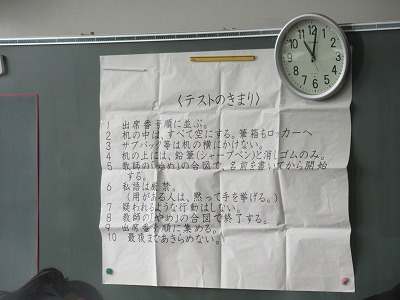 〈テストのきまり〉
1 出席番号順に並ぶ。
2 机の中は、すべて空にする。筆箱もロッカーへ
3 サブバッグ等は机の横にかけない。
4 机の上には、鉛筆(シャープペン)と消しゴムのみ。
5 教師の「始め」の合図で、名前を書いてから開始
する。
6 私語は厳禁。
(用がある人は、黙って手を挙げる。)
7 疑われるような行動はしない。
8 教師の「やめ」の合図で終了する。
9 出席番号順に集める。
10 最後まであきらめない。
12
1
2
3
4
5
6
7
8
9
10
11